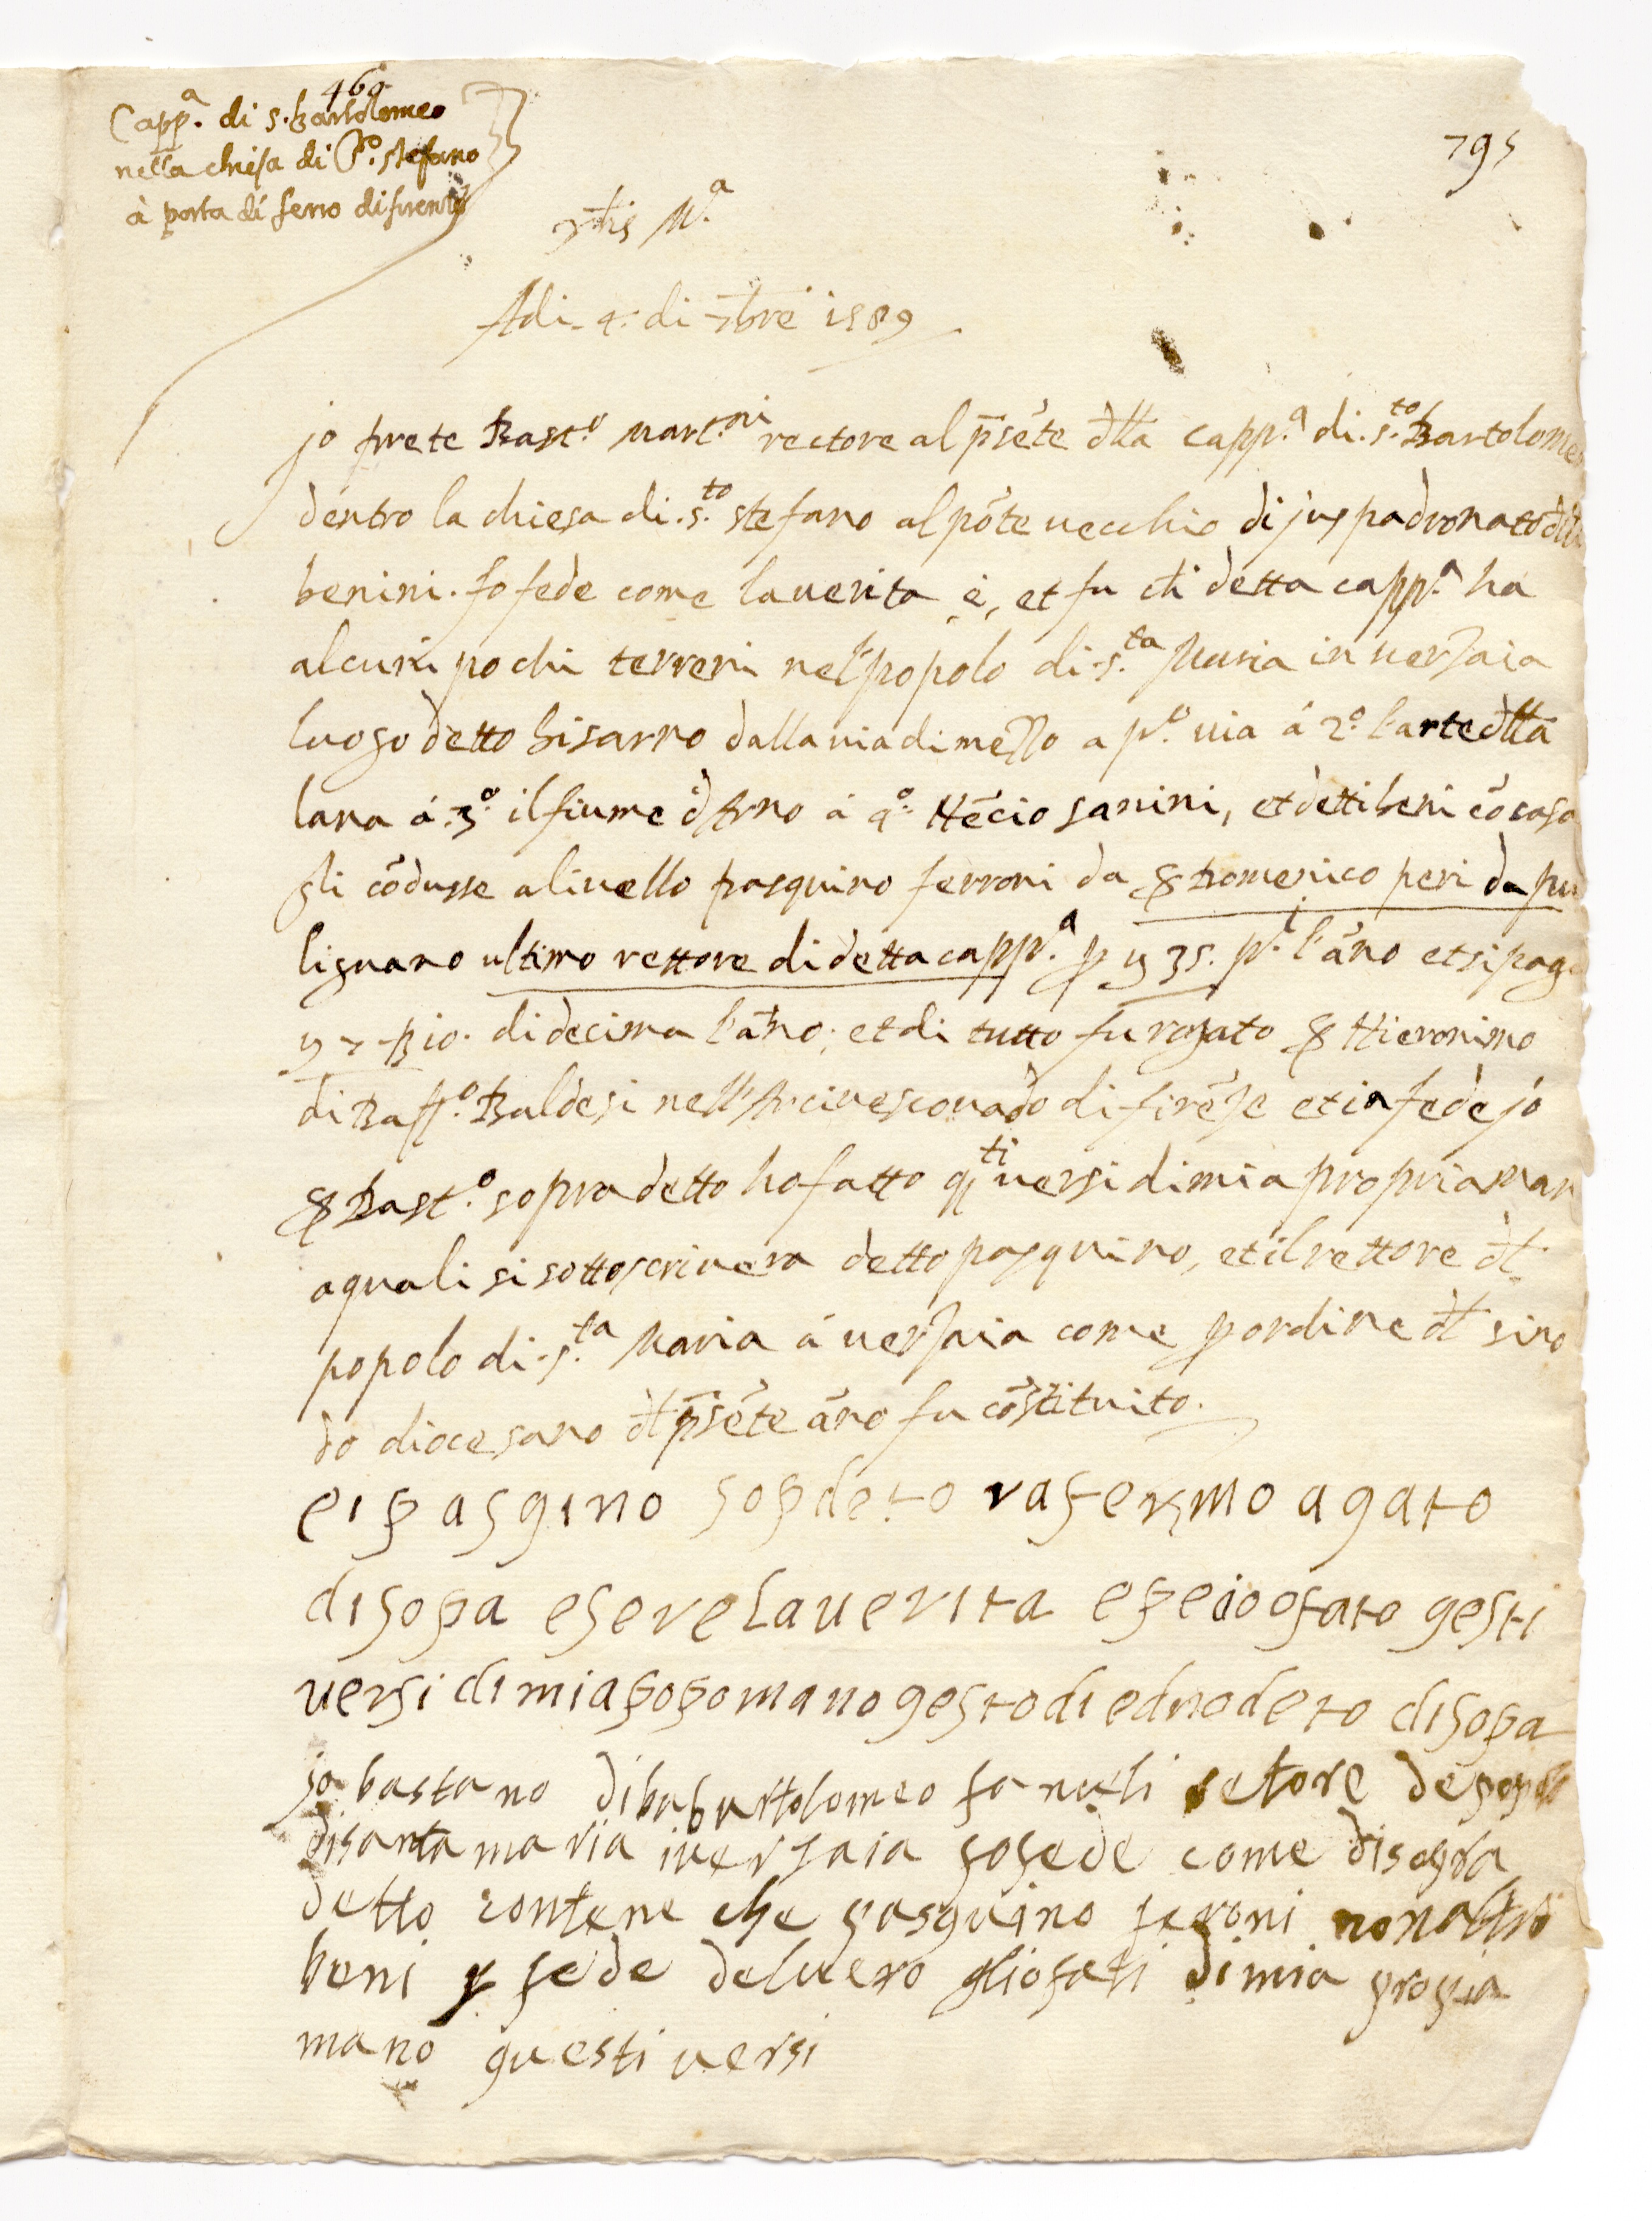 460
Capp.a di s. bartolomeo
nella chiesa di S.to stefano
à porta di ferro di firenze
795
yhs M.a
Adi. 4. di 7bre 1589
jo prete Bast.o Mart.ni rectore al p̄sēte dlla capp.a di. s.to Bartolomeo
dentro la chiesa di. s.to stefano al pōte uecchio di jus padronato dlla
benini. fo fede come la uerita è, et fu ch detta capp.a ha
alcuni pochi terreni nel popolo di. s.ta Maria in uerzaia
luogo detto bisarno dalla uia di mezzo a p.o uia á 2.o l'arte dlla
lana á .3.o il fiume d'Arno á 4.o sanini, et detti beni cō casa
gli cōdusse a liuello pasquino ferroni da domenico peri da pu
lignano ultimo rettore di detta capp.a p 35. l'āno et si paga
10. di decima l'āno; et di tutto fu rogato Hieronimo
di Baldesi nell'Arciuescouado di firēze et in fede jo
Bast.o sopradetto ho fatto q.ti uersi di mia propria man
a quali si sottoscriuera detto pasquino, et il rettore dl
popolo di. s.ta Maria á uerzaia come p ordine dl sino
do diocesano dl p̄sēte āno fu cōstituito.
eipasqino sopdeto rafermo agato
disopa esere lauerita epeio ofato qesti
uersi dimia popomano qestodi ed deto disopa
jo bastano di bartolomeo retore depopolo
disanta maria iuerzaia fofede come disopra
detto contene che pasquino feroni
beni p fede deluero gliofati dimia propia
mano questi uersi